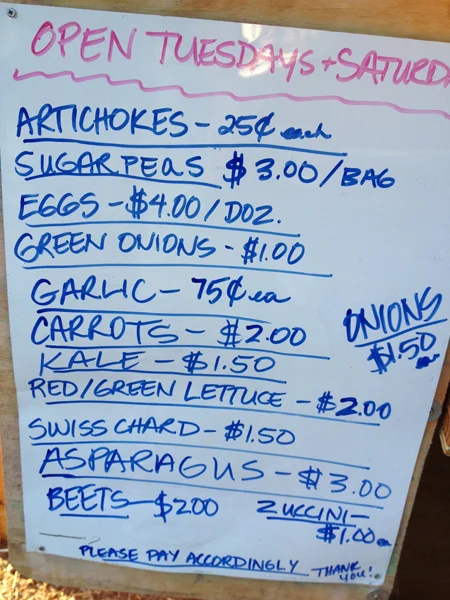 OPEN TUESDAYS + SATURD
ARTICHOKES - 25¢ each
SUGAR PEAS $3.00/BAG
EGGS - $4.00/DOZ.
GREEN ONIONS - $1.00
GARLIC - 75¢ ea
CARROTS - $2.00
ONIONS
$1.50
KALE - $1.50
RED/GREEN LETTUCE - $2.00
SWISS CHARD - $1.50
ASPARAGUS - $3.00
BEETS - $200
ZUCCINI -
$1.00 ea
PLEASE PAY ACCORDINGLY
THANK
YOU!